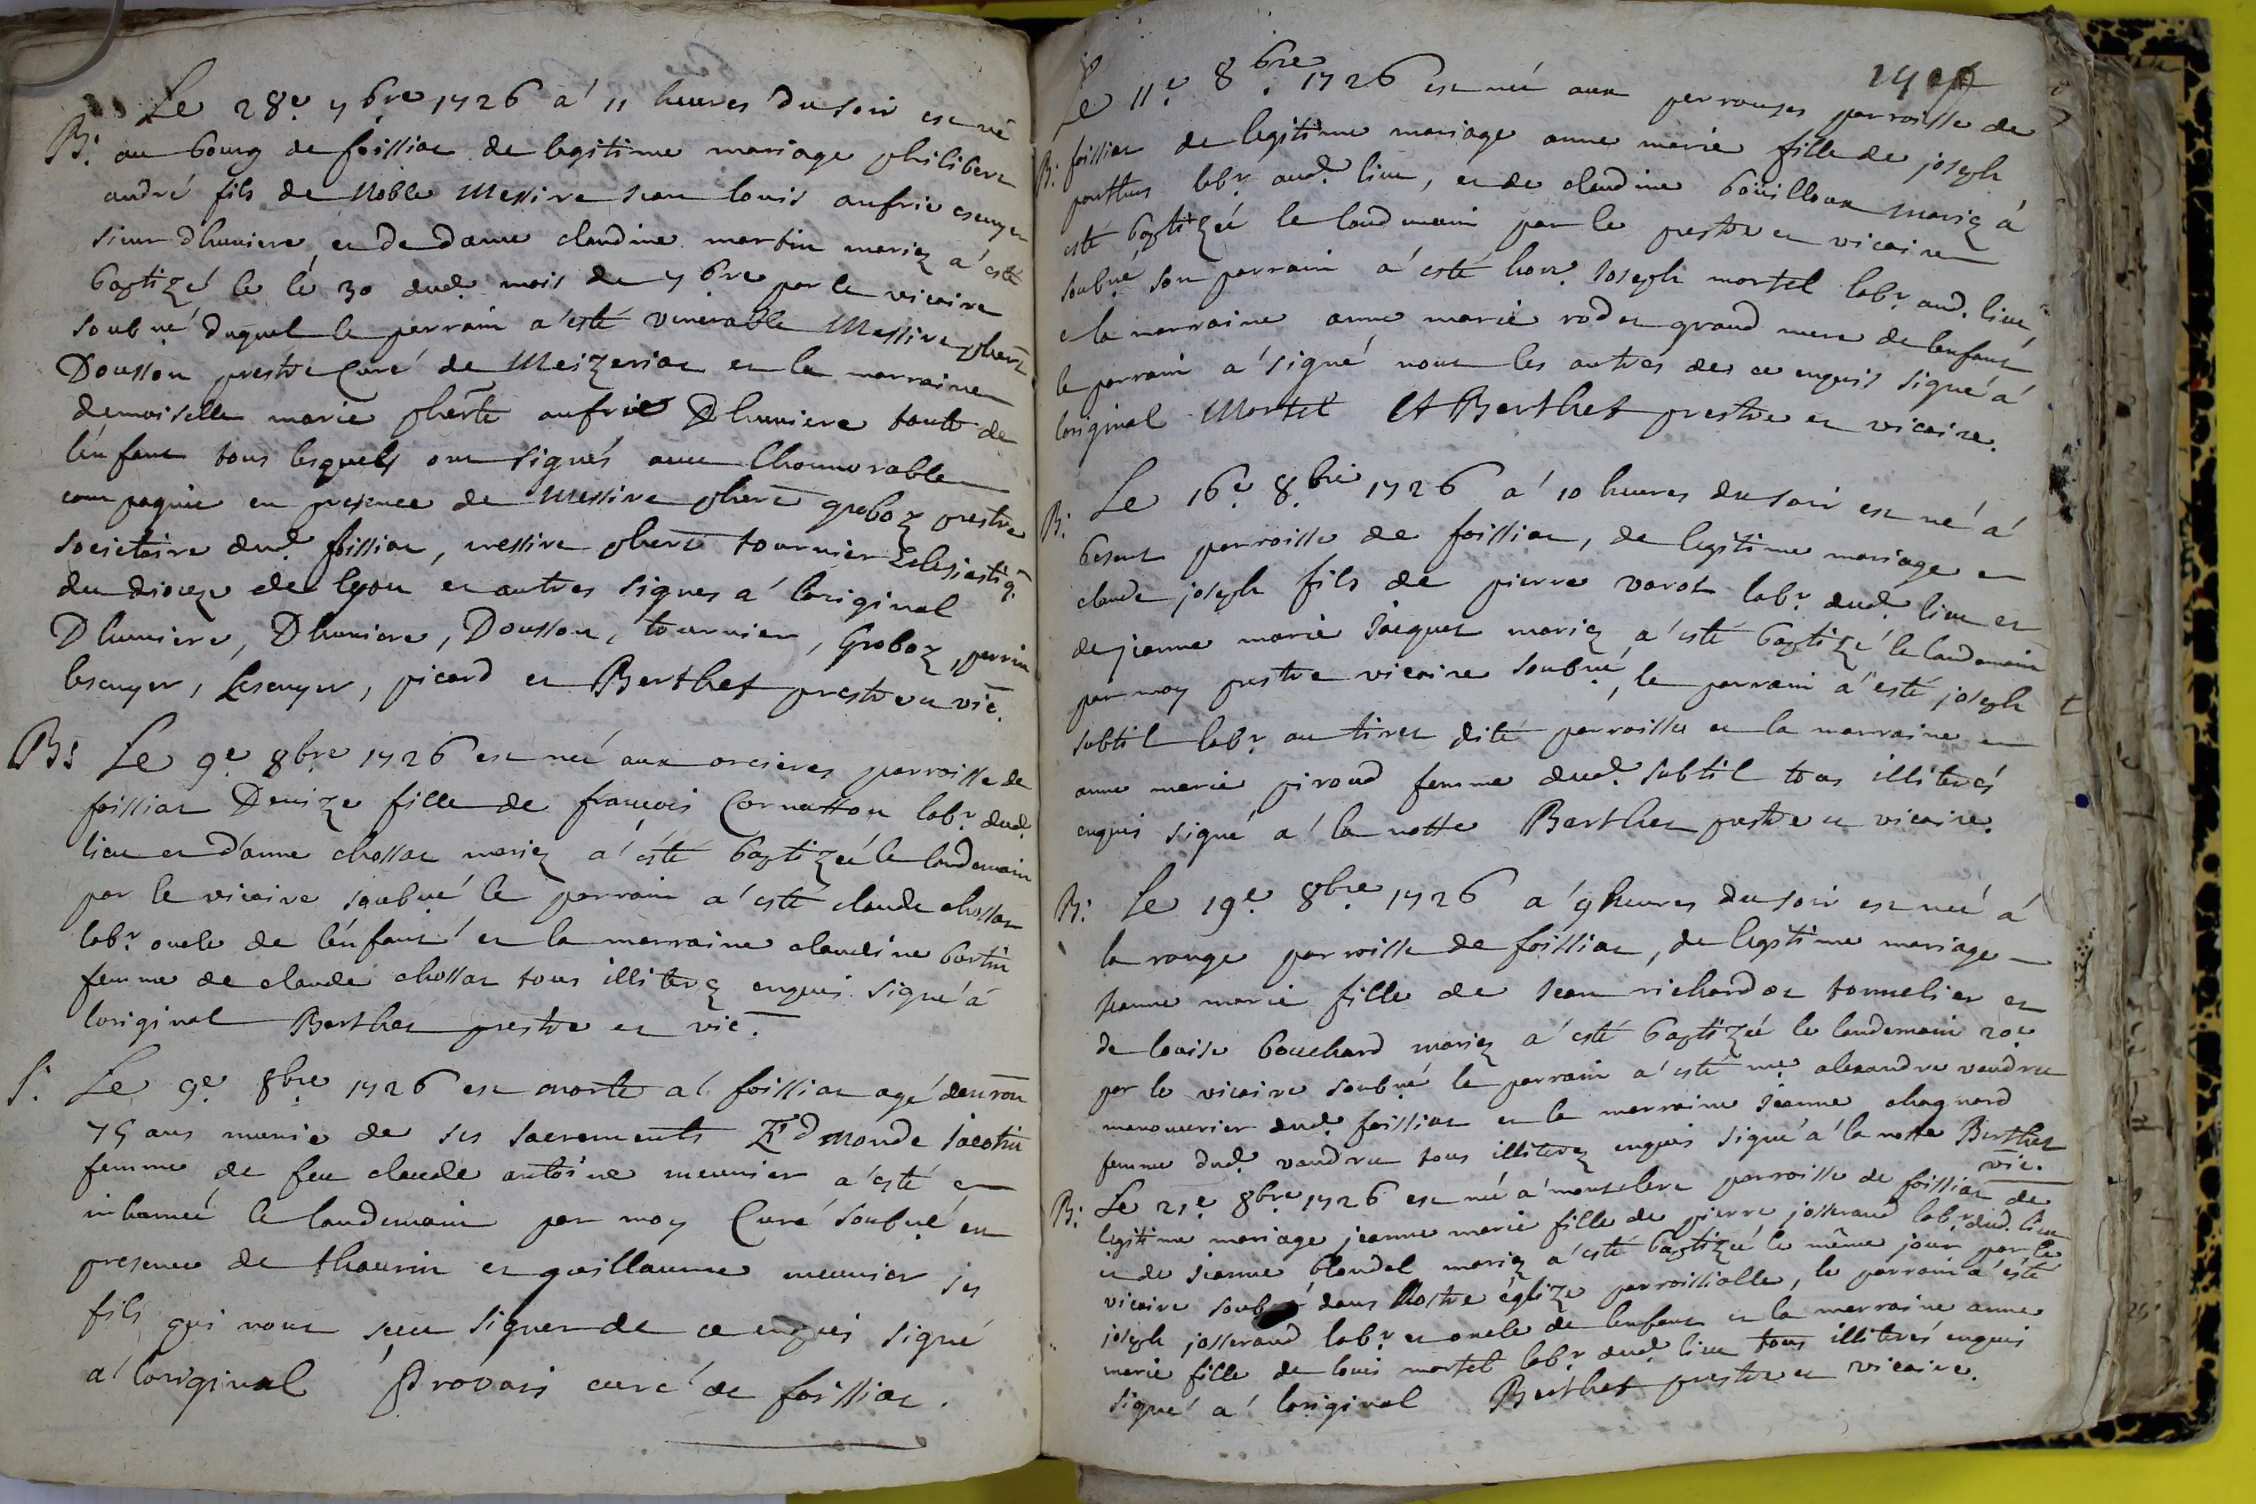 Le 28e 7bre 1726 a' 11 heures du soir est né
B: au bourg de foissiat de legitime mariage philibert
andré fils de Noble Messire jean louis aufrie escuyer
sieur dhuniere et de dame claudine martin mariez a' esté
baptizé le le 30 dud. mois de 7bre par le vicaire
soubné duquel le parrain a'esté venerable Messire phert
Dousson prestre Curé de Meizeriat et la marraine
demoiselle marie pherte aufrie Dhuniere tante de
l'enfant tous lesquels ont signés avec Lhonnorable
compagnie en presence de Messire phert groboz prestre
societaire dud. foissiat, messire phert tournier Eclesiastiq.
du dioceze de lyon et autres signes a' l'original
Dhuniere, Dhuniere, Dousson, tournier, Groboz, perrin
lescuyer, Lescuyer, picard et Berthet prestre et vic.
B: Le 9e 8bre 1726 est née aux orcieres parroisse de
foissiat Denize fille de francois Cornatton labr dud.
lieu et d'anne chossat mariez a' esté baptizeé le landemain
par le vicaire soubné le parrain a' esté claude chossat
labr oncle de l'enfant et la marraine claudine bertin
femme de claude chossat tous illiterez enquis signé a'
l'original Berthet prestre et vic.
S. Le 9e 8bre 1726 est morte a' foissiat agé denron
75 ans munie de ses sacrements Edmonde jacotin
femme de feu claude antoine meunier a'esté
inhumeé le landemain par moy Curé soubné en
presence de thaurin et guillaume meunier ses
fils qui nont sceu signer de ce enquis signé
a' loriginal Provois curé de foissiat.
Le 11e 8bre 1726 est neé aux perrouzes parroisse de
B: foissiat de legitime mariage anne marie fille de joseph
ponthus labr aud. lieu, et de claudine bouilloux mariez a'
esté baptizeé le landemain par le prestre et vicaire
soubné son parrain a' esté hon. joseph mortel labr aud. lieu
la marraine anne marie rodet grand mere de lenfant
le parrain a' signé nont les autres de ce enquis signé a'
loriginal Mortel Berthet prestre et vicaire.
B: Le 16e 8bre 1726 a' 10 heures du soir est né a'
besent parroisse de foissiat, de legitime mariage
claude joseph fils de pierre varot labr dud. lieu et
de jeanne marie jacquet mariez a' esté baptizé le landemain
par moy prestre vicaire soubné, le parrain a' esté joseph
subtil labr au tiret dite parroisse et la marraine
anne marie piroud femme dud. subtil tous illiterés
enquis signé a' la notte Berthet prestre et vicaire.
B: Le 19e 8bre 1726 a' 9 heures du soir est neé a'
la rouge parroisse de foissiat, de legitime mariage
jeanne marie fille de jean richardot tonnelier et
de louise bouchard mariez a' esté baptizeé le landemain 20e
par le vicaire soubné le parrain a' esté me alexandre vendru
manouvrier dud. foissiat et la marraine jeanne chagnard
femme dud. vandru tous illiterez enquis signé a' la notte Berthet
vic.
B: Le 21e 8bre 1726 est neé a' montclere parroisse de foissiat de
legitime mariage jeanne marie fille de pierre josserand labr dud. lieu
et de jeanne blondel mariez a' esté baptizeé le même jour par le
vicaire soubné dans Nostre église parroissialle, le parrain a' esté
joseph josserand labr et oncle de lenfant et la marraine anne
marie fille de louis mortel labr dud. lieu tous illiterés enquis
signé a' loriginal Berthet prestre et vicaire.